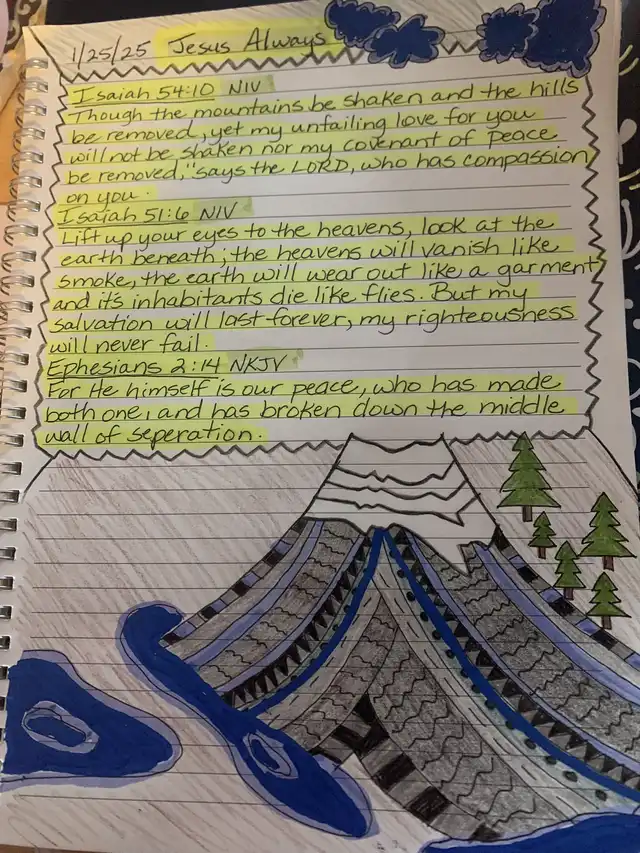 1/25/25 Jesus Always
Isaiah 54:10 NIV
Though the mountains be shaken and the hills
be removed, yet my unfailing love for you
will not be shaken nor my covenant of peace
be removed," says the LORD, who has compassion
on you.
Isaiah 51:6 NIV
Lift up your eyes to the heavens, look at the
earth beneath; the heavens will vanish like
smoke, the earth will wear out like a garment
and its inhabitants die like flies. But my
salvation will last forever, my righteousness
will never fail.
Ephesians 2:14 NKJV
For He himself is our peace, who has made
both one, and has broken down the middle
wall of seperation.